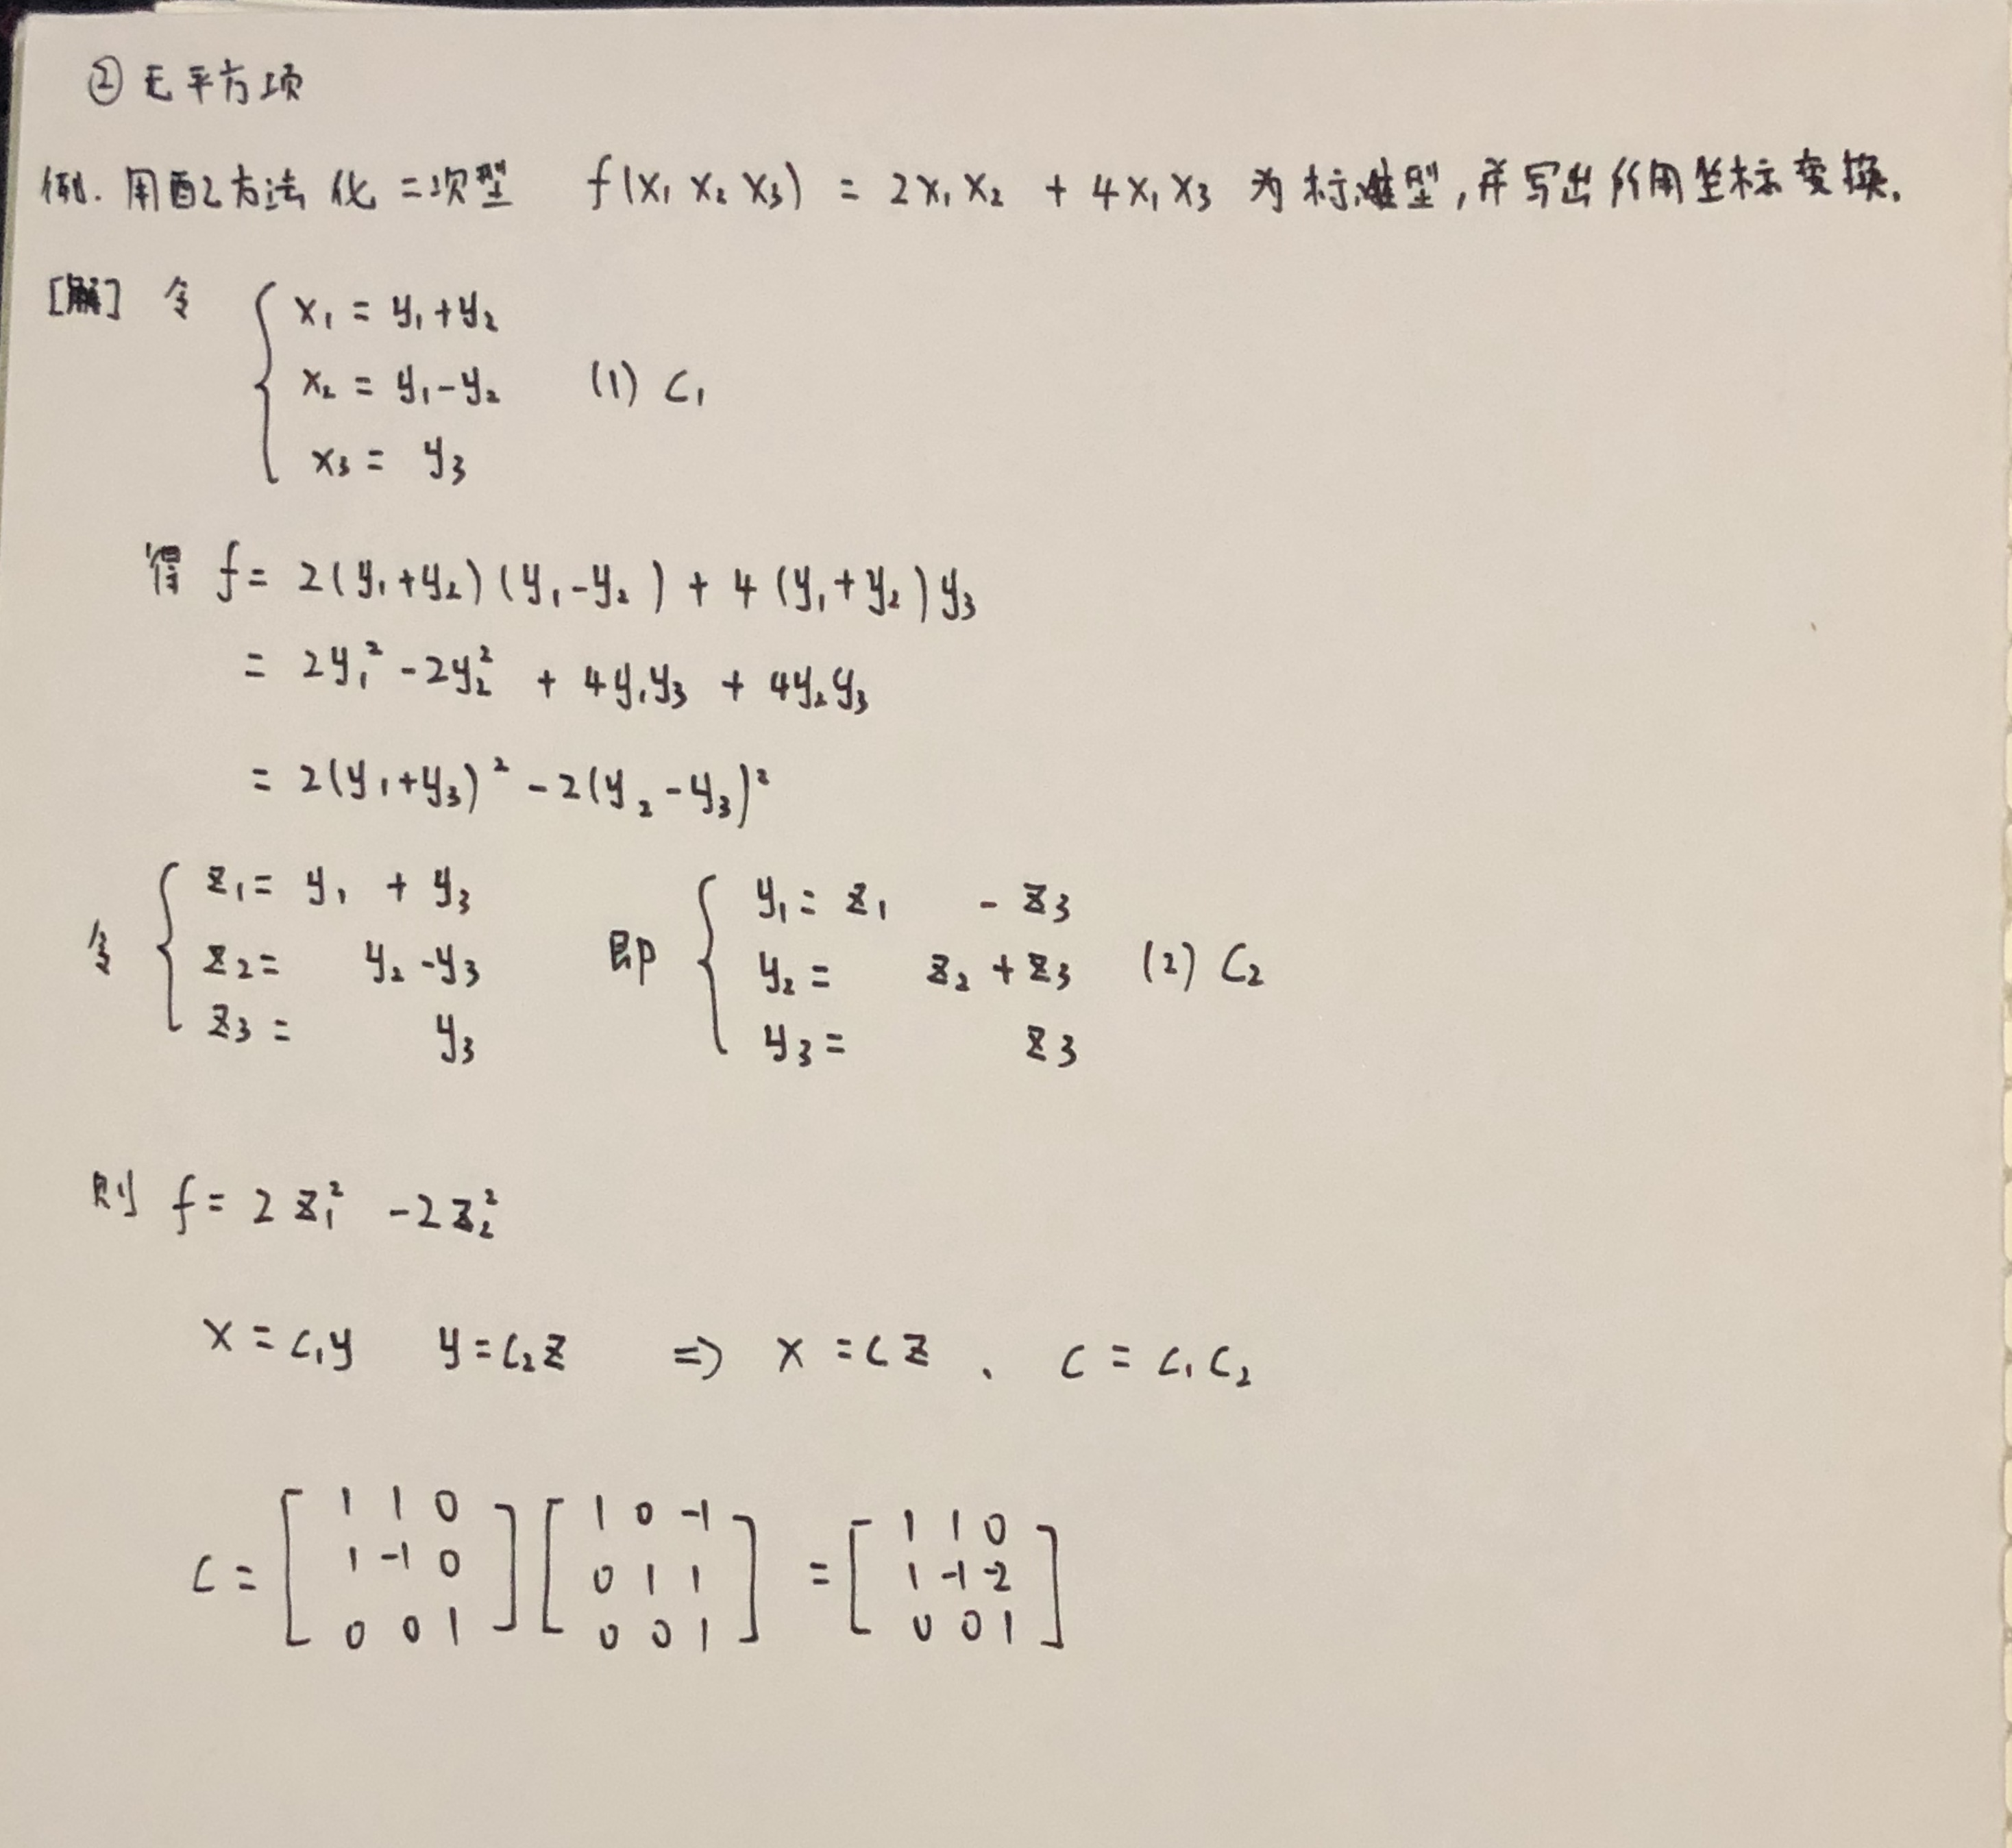 ② 无平方项
例. 用配方法化二次型 f(x₁ x₂ x₃) = 2x₁x₂ + 4x₁x₃ 为标准型,并写出所用坐标变换.
[解] 令 { x₁ = y₁+y₂
x₂ = y₁-y₂ (1) C₁
x₃ = y₃
得 f = 2(y₁+y₂)(y₁-y₂) + 4(y₁+y₂)y₃
= 2y₁² -2y₂² + 4y₁y₃ + 4y₂y₃
= 2(y₁+y₃)² -2(y₂-y₃)²
令 { z₁ = y₁ + y₃ 即 { y₁ = z₁ - z₃
z₂ = y₂ -y₃ y₂ = z₂ + z₃ (2) C₂
z₃ = y₃ y₃ = z₃
则 f = 2z₁² -2z₂²
x = C₁y y = C₂z ⇒ x = Cz 、 C = C₁C₂
C = [ 1 1 0 ] [ 1 0 -1 ] = [ 1 1 0 ]
1 -1 0 0 1 1 1 -1 -2
0 0 1 0 0 1 0 0 1